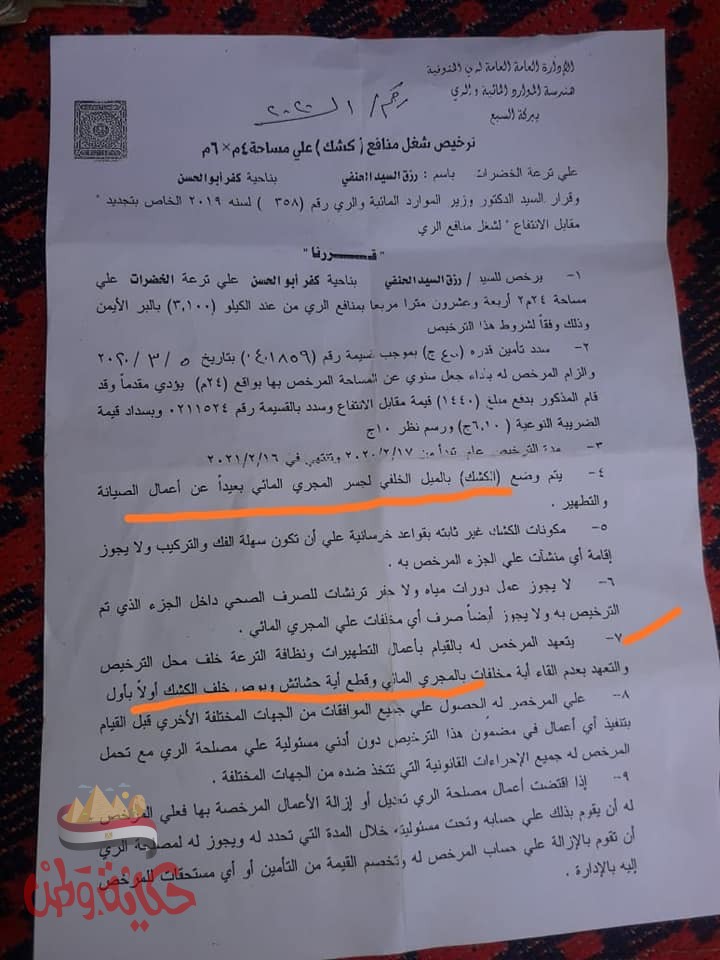 الإدارة العامة العامة لري المنوفية
هندسة الموارد المائية والري
ببركة السبع
ترخيص شغل منافع ( كشك ) علي مساحة ٤م × ٦م
علي ترعة الخضرات باسم : رزق السيد الحنفي بناحية كفر أبو الحسن
وقرار السيد الدكتور وزير الموارد المائية والري رقم ( ٣٥٨ ) لسنه ٢٠١٩ الخاص بتجديد "
مقابل الانتفاع " لشغل منافع الري
" قـــررنا "
١- يرخص للسيد / رزق السيد الحنفي بناحية كفر أبو الحسن علي ترعة الخضرات علي
مساحة ٢٤م٢ أربعة وعشرون مترا مربعا بمنافع الري من عند الكيلو (٣,١٠٠) بالبر الأيمن
وذلك وفقاً لشروط هذا الترخيص
٢- سدد تأمين قدره ( ج) بموجب قسيمة رقم ( ٠٤٠١٨٥٩) بتاريخ ٥ / ٣ / ٢٠٢٠
والزام المرخص له بأداء جعل سنوي عن المساحة المرخص بها بواقع (٢٤م) يؤدي مقدماً وقد
قام المذكور بدفع مبلغ (١٤٤٠) قيمة مقابل الانتفاع وسدد بالقسيمة رقم ٠٢١١٥٢٤ وبسداد قيمة
الضريبة النوعية (٦,١٠ج) ورسم نظر ١٠ج
٣- مدة الترخيص عام تبدأ من ٢٠٢٠/٢/١٧ وتنتهي في ٢٠٢١/٢/١٦
٤- يتم وضع (الكشك) بالميل الخلفي لجسر المجري المائي بعيداً عن أعمال الصيانة
والتطهير .
٥- مكونات الكشك غير ثابته بقواعد خرسانية علي أن تكون سهلة الفك والتركيب ولا يجوز
إقامة أي منشآت علي الجزء المرخص به .
٦- لا يجوز عمل دورات مياه ولا حفر ترنشات للصرف الصحي داخل الجزء الذي تم
الترخيص به ولا يجوز أيضاً صرف أي مخلفات علي المجري المائي .
٧- يتعهد المرخص له بالقيام بأعمال التطهيرات ونظافة الترعة خلف محل الترخيص
والتعهد بعدم القاء أية مخلفات بالمجري المائي وقطع أية حشائش وبوص خلف الكشك أولاً بأول
٨- علي المرخص له الحصول علي جميع الموافقات من الجهات المختلفة الأخري قبل القيام
بتنفيذ أي أعمال في مضمون هذا الترخيص دون أدني مسئولية علي مصلحة الري مع تحمل
المرخص له جميع الإجراءات القانونية التي تتخذ ضده من الجهات المختلفة .
٩- إذا اقتضت أعمال مصلحة الري تعديل أو إزالة الأعمال المرخصة بها فعلي المرخص
له أن يقوم بذلك علي حسابه وتحت مسئوليته خلال المدة التي تحدد له ويجوز له لمصلحة الري
أن تقوم بالإزالة علي حساب المرخص له وتخصم القيمة من التأمين أو أي مستحقات للمرخص
إليه بالإدارة .
حكاية وطن